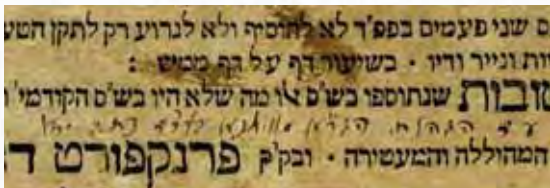 ם שני פעמים בפפ"ד לא להוסיף ולא לגרוע רק לתקן הטע
ות ונייר ודיו · בשיעור דף על דף ממש :
שנתוספו בש"ס או מה שלא היו בש"ס הקודמי'
הגהות הגר"א
המהוללה והמעטירה · ובק"ק פרנקפורט ד